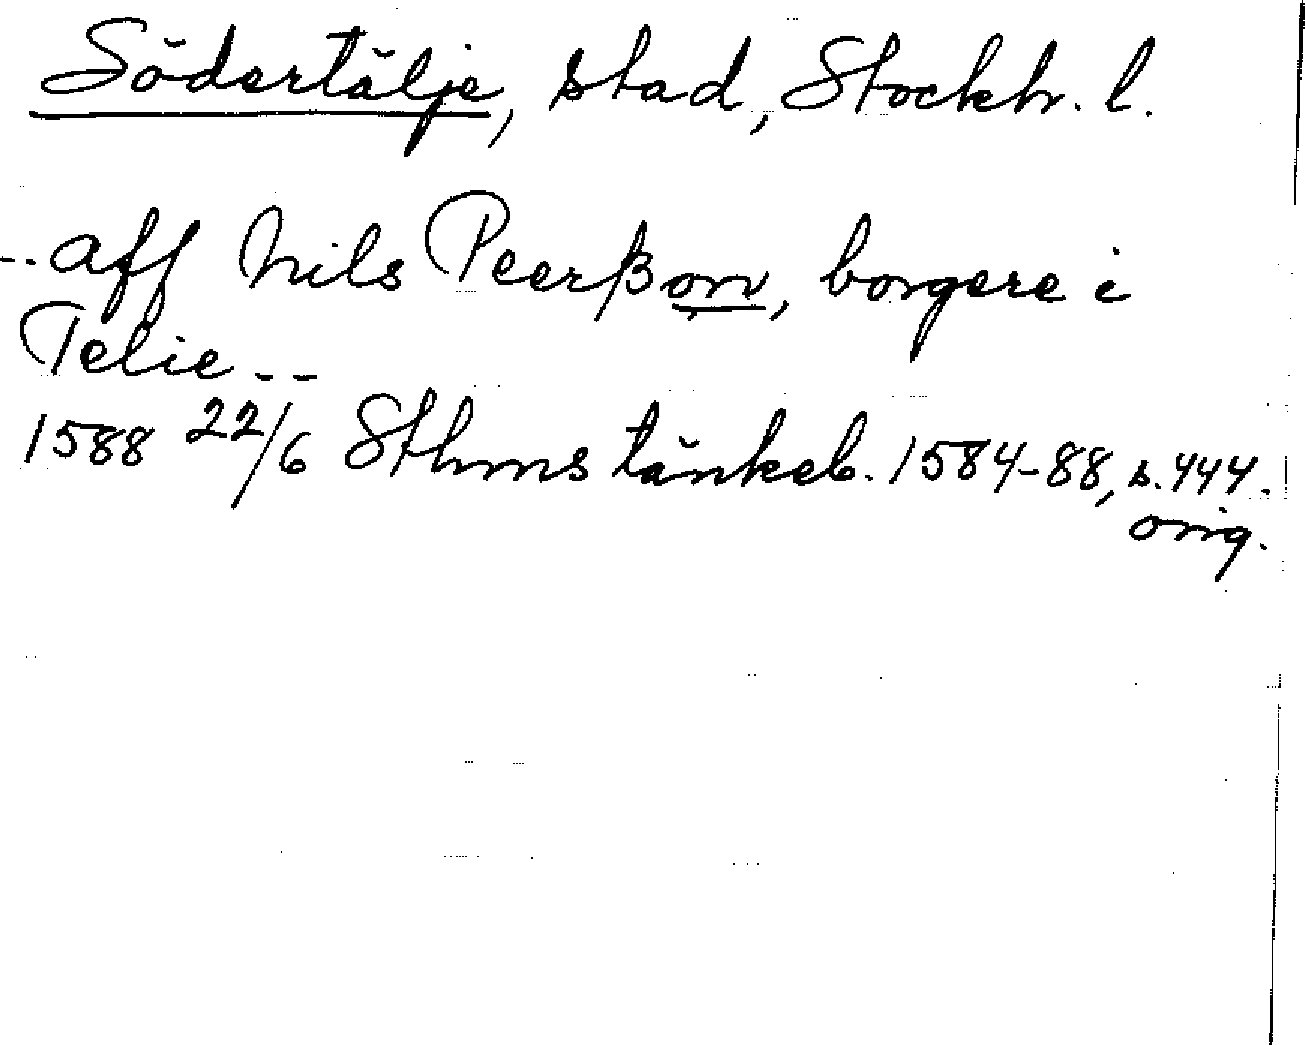 Södertälje, stad, Stockh. l.
-- aff Nils Peerßon, borgere i
Telie --
1588 22/6 Sthms tänkeb. 1584-88, s. 444.
orig.